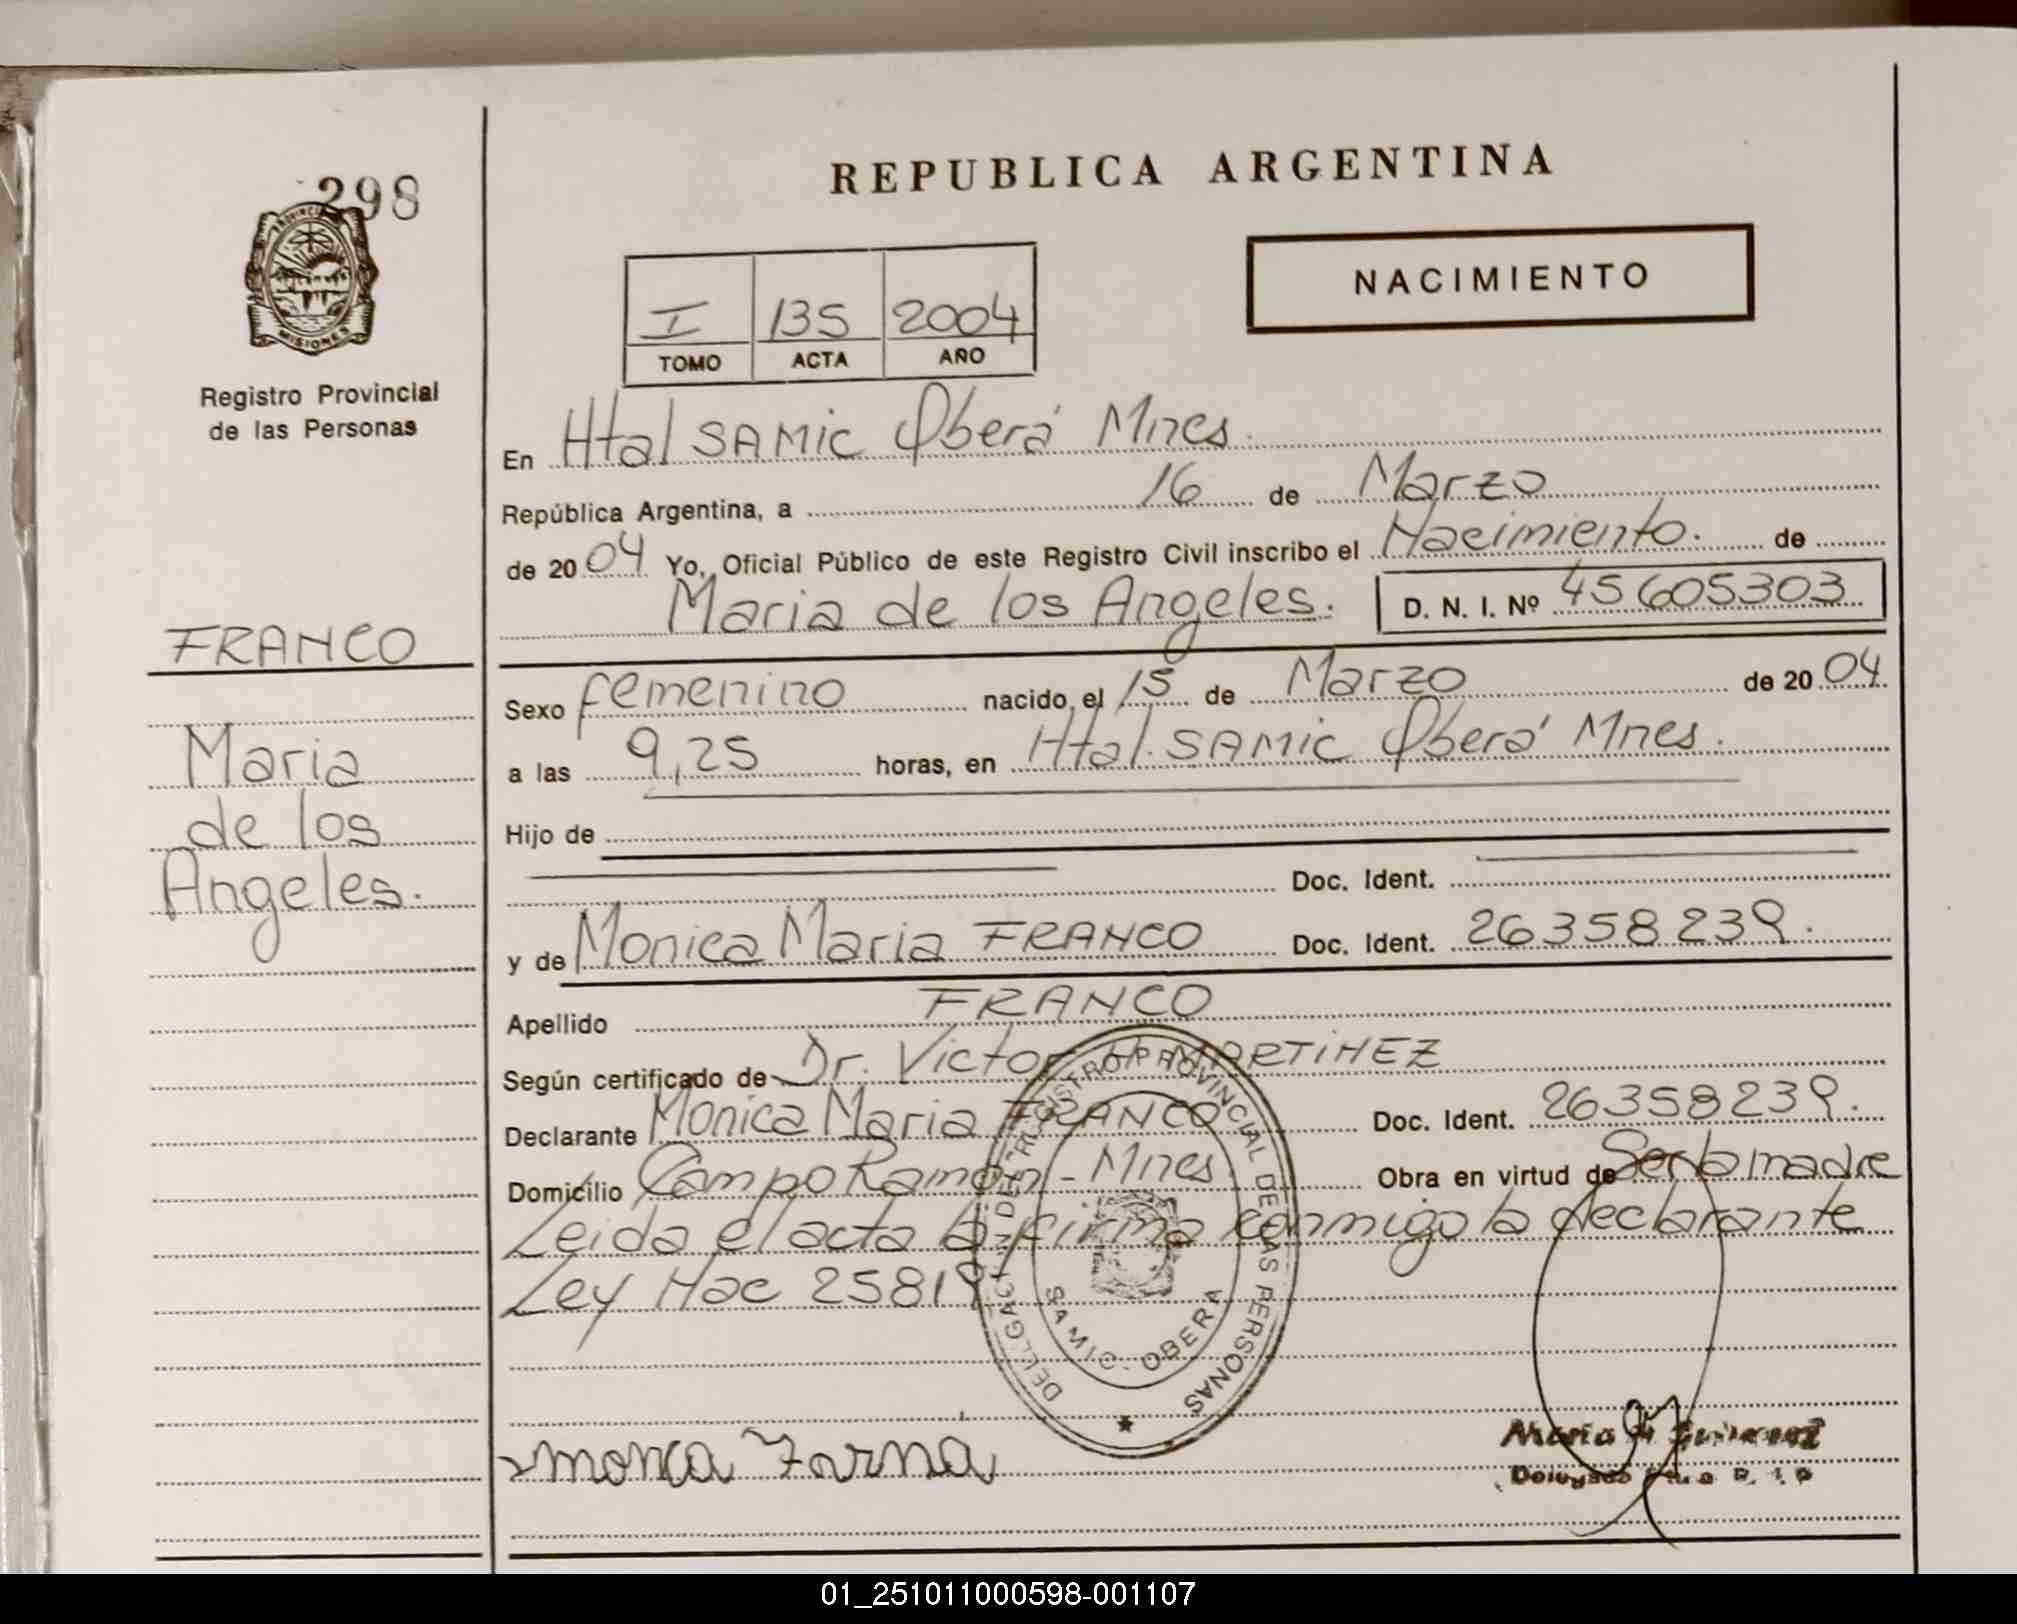 298
PROVINCIA
MISIONES
Registro Provincial
de las Personas
FRANCO
Maria
de los
Angeles.
REPUBLICA ARGENTINA
NACIMIENTO
I 135 2004
TOMO ACTA AÑO
En Htal SAMIC Oberá Mnes.
República Argentina, a 16 de Marzo
de 2004 Yo, Oficial Público de este Registro Civil inscribo el Nacimiento. de
Maria de los Angeles. D. N. I. Nº 45605303
Sexo femenino nacido el 15 de Marzo de 2004
a las 9,25 horas, en Htal. SAMIC Oberá Mnes.
Hijo de
Doc. Ident.
y de Monica Maria FRANCO Doc. Ident. 26358239.
Apellido FRANCO
Según certificado de Dr. Victor MARTINEZ
Declarante Monica Maria FRANCO Doc. Ident. 26358239.
Domicilio Campo Ramón - Mnes Obra en virtud de Ser la madre
Leida el acta la firma conmigo la declarante
Ley Nac 25819
REGISTRO PROVINCIAL DE LAS PERSONAS
SAMIC. OBERA
Maria
01_251011000598-001107